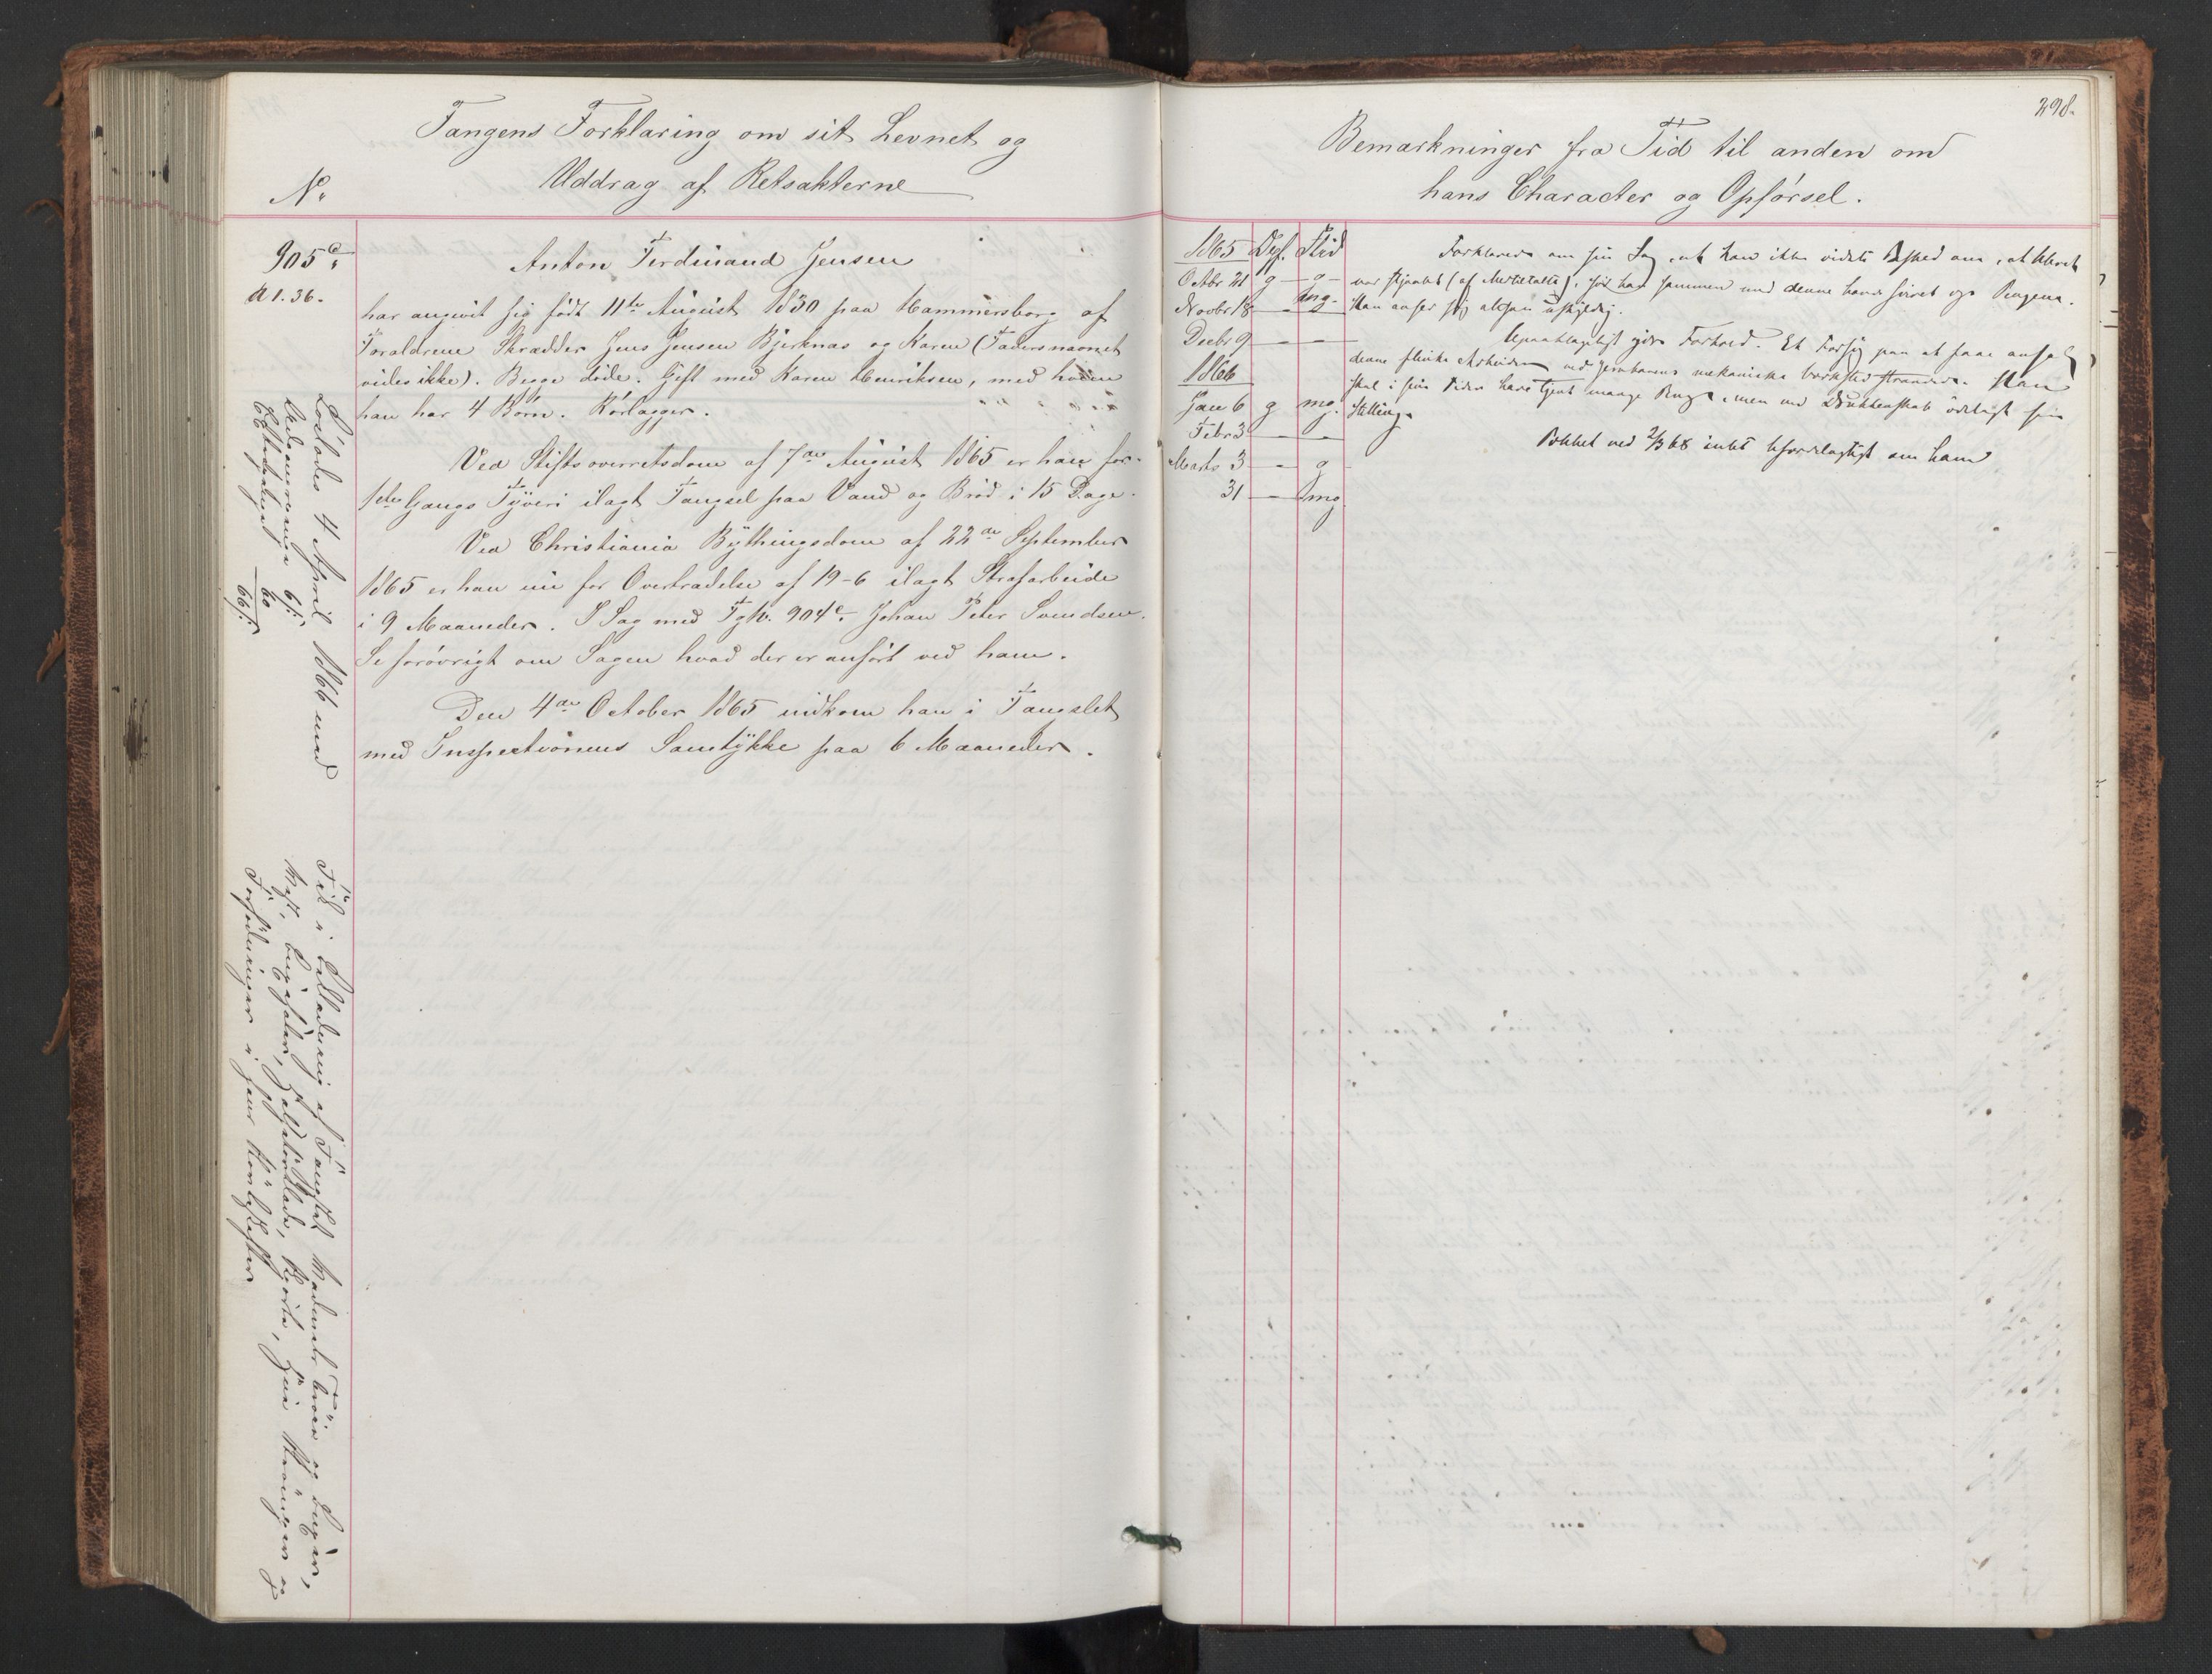 Fangens Forklaring om sit Levnet og
Uddrag af Retsakterne
No.
905c.
A 1. 36.
Anton Ferdinand Jensen
har angivet sig født 11te August 1830 paa Hammersborg af
Forældrene Skrædder Jens Jensen Bjerknæs og Karen (Fadersnavnet
vides ikke). Begge døde. Gift med Karen Henriksen, med hvem
han har 4 Børn. Rørlægger.
Ved Stiftsoverretsdom af 7de August 1865 er han for
1ste Gangs Tyveri ilagt Fængsel paa Vand og Brød i 15 Dage.
Ved Christiania Bythingsdom af 22de September
1865 er han nu for Overtrædelse af 19-6 ilagt Strafarbeide
i 9 Maaneder. I Sag med Fg No. 904c. Johan Peter Svendsen.
Se forøvrigt om Sagen hvad der er anført ved ham.
Den 4de October 1865 indkom han i Fængslet
med Inspectionens Samtykke paa 6 Maaneder.
Løslades 4 April 1866 med
Medbragte Penge 6 s.
60
66 s.
Fik i Udlevering af Fængslet
Buxer, Skjorte,
298.
Bemærkninger fra Tid til anden om
hans Character og Opførsel.
1865 Opf. Flid
Octbr 21 g g
Novbr 18 — mg
Decbr 9 — —
1866
Jan 6 g mg.
Febr 3 — —
Marts 3 — g
31 — mg
Forklarer om sin Sag, at han ikke vidste Besked om, at Uhret
var stjaalet (af Medtiltalte), før han sammen med denne havde sviret op Pengene.
Han anser sig altsaa uskyldig.
Upaaklageligt godt Forhold. Et Forsøg paa at faae ansat
denne flinke Arbeider ved Jernbanens mekaniske Værksted strandede. Han
skal i sin Tid have tjent mange Penge, men ved Drukkenskab ødelagt sin
Stilling.
Politiet ved 2/3 68 intet ufordelagtigt om ham